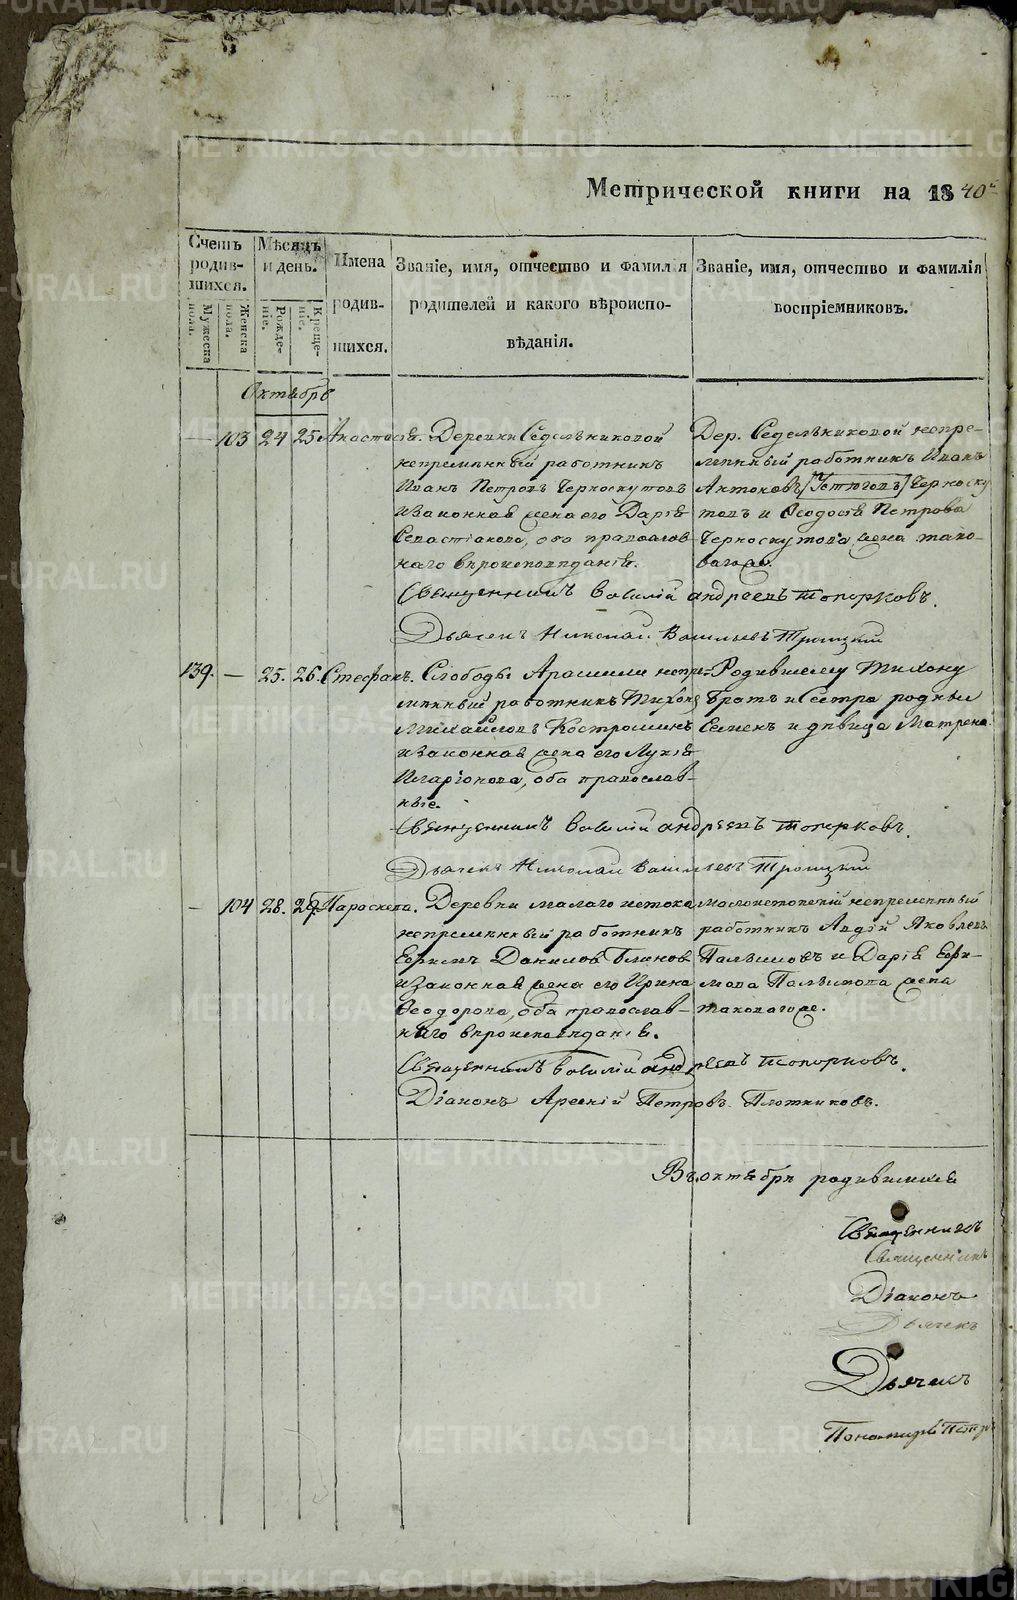 Метрической книги на 1840й
Счетъ родившихся.
Мѣсяцъ и день.
Имена родившихся.
Званіе, имя, отчество и фамилія родителей и какого вѣроисповѣданія.
Званіе, имя, отчество и фамилія воспріемниковъ.
Мужеска пола.
Женска пола.
Рожденіе.
Крещеніе.
Октябрь
— 103 24 25 Анастасія. Деревни Седельниковой
непременный работникъ
Иванъ Петровъ Черноскутовъ
и законная жена его Дарія
Севастіанова, оба православ-
наго вѣроисповѣданія.
Дер. Седельниковой непре-
менный работникъ Иванъ
Антоновъ (Устюговъ) Черноску
товъ и Ѳеодосія Петрова
Черноскутова жена тако-
вагоже.
Священникъ Василій Андреевъ Топорковъ.
Дьячекъ Николай Васильевъ Троицкий
139. — 25. 26. Стефанъ. Слободы Арамили непре-
менный работникъ Тихонъ
Михайловъ Костроминъ
и законная жена его Лукія
Иларіонова, оба православ-
ные.
Родившему Тихону
братъ и сестра родные
Семенъ и дѣвица Матрена
Священникъ Василій Андреевъ Топорковъ.
Дьячекъ Николай Васильевъ Троицкий
— 104 28. 29. Параскева. Деревни малаго истока
непременный работникъ
Ефимъ Даниловъ Блиновъ
и законная жена его Ирина
Ѳеодорова, оба православ-
наго вѣроисповѣданія.
малоистокскій непременный
работникъ Авдій Яковлевъ
Пальшовъ и Дарія Ефи-
мова Пальшова жена
таковагоже.
Священникъ Василій Андреевъ Топорковъ.
Діаконъ Арсеній Петровъ Плотниковъ.
Въ октябрѣ родившихся
Священникъ
Священникъ
Діаконъ
Дьячекъ
Дьячекъ
Пономарь Петръ
METRIKI.GASO-URAL.RU